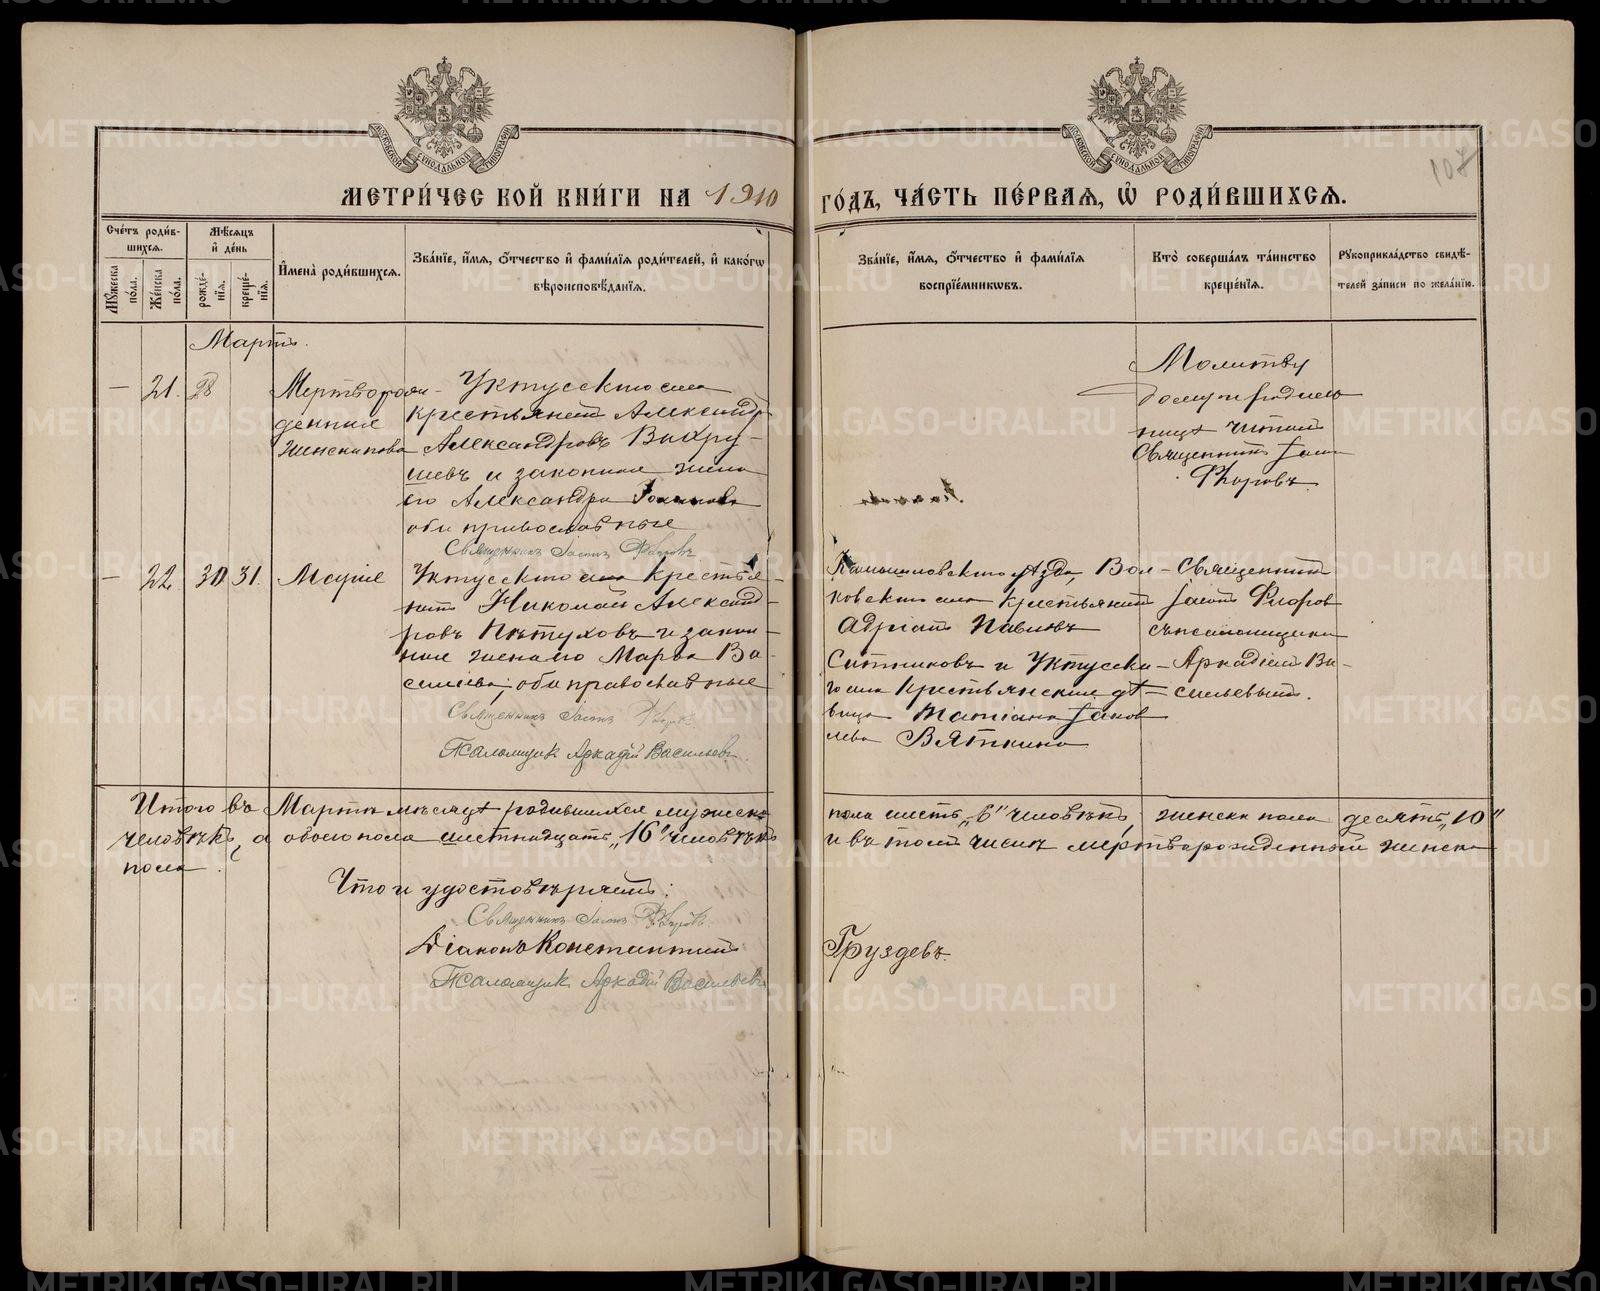 МЕТРИ́ЧЕСКОЙ КНИ́ГИ НА 1910 ГО́ДЪ, ЧА́СТЬ ПЕ́РВАЯ, Ѽ РОДИ́ВШИХСЯ.
107
Сче́тъ роди́в-
шихся.
Мѣ́сяцъ
и҆ де́нь
Му́жеска по́ла.
Же́нска по́ла.
рожде́-
нїя.
креще́-
нїя.
И҆мена̀ роди́вшихся.
Зва́нїе, и҆́мя, ѻ҆́тчество и҆ фами́лїя роди́телей, и҆ како́гѡ
вѣроисповѣ́данїя.
Зва́нїе, и҆́мя, ѻ҆́тчество и҆ фами́лїя
воспрїе́мникѡвъ.
Кто̀ соверша́лъ та́инство
креще́нїя.
Рꙋкоприкла́дство свидѣ́-
телей за́писи по жела́нїю.
Мартъ.
— 21. 28
Мертворож-
денная
женск. пола
Уктусскаго села
крестьянинъ Александръ
Александровъ Вахру-
шевъ и законная жена
его Александра
оба православные
Священникъ Іаковъ Флоровъ
Молитву
родильницѣ читалъ
Священникъ Іаковъ
Флоровъ.
— 22. 30 31. Марія
Уктусскаго села крестья-
нинъ Николай Александ-
ровъ Пѣтуховъ и закон-
ная жена его Марѳа Ва-
сильева; оба православные
Священникъ Іаковъ Флоровъ
Псаломщик Аркадій Васильевъ
Камышловскаго уѣзда, Вол-
ковскаго села крестьянинъ
Адріанъ Павловъ
Ситниковъ и Уктусска-
го села крестьянская дѣ-
вица Татіана Іаков
лева Вяткина
Священникъ
Іаковъ Флоровъ
съ псаломщикомъ
Аркадіемъ Ва-
сильевымъ.
Итого въ Мартѣ мѣсяцѣ родившихся мужска пола шесть „6“ человѣкъ, женска пола десять „10“
человѣкъ, а обоего пола шестнадцать „16“ человѣкъ и въ томъ числѣ мертворожденный женска
пола.
Что и удостовѣряютъ:
Священникъ Іаковъ Флоровъ.
Діаконъ Константинъ Груздевъ.
Псаломщик Аркадій Васильевъ
METRIKI.GASO-URAL.RU